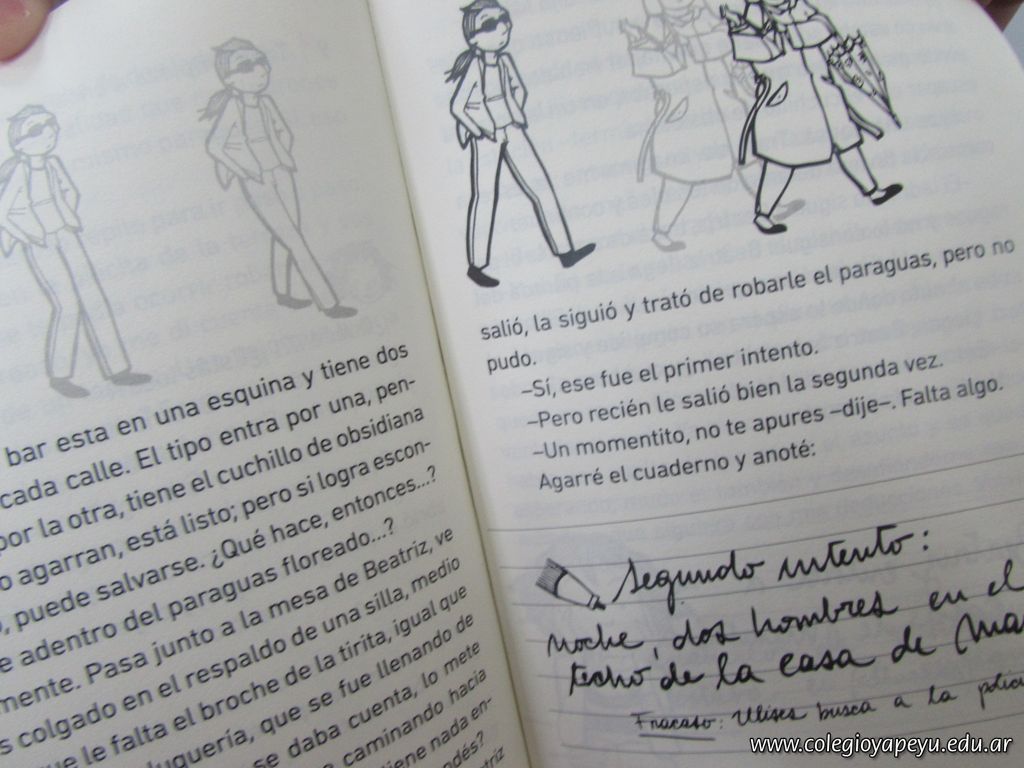 bar esta en una esquina y tiene dos
cada calle. El tipo entra por una, pen-
por la otra, tiene el cuchillo de obsidiana
o agarran, está listo; pero si logra escon-
, puede salvarse. ¿Qué hace, entonces...?
e adentro del paraguas floreado...?
mente. Pasa junto a la mesa de Beatriz, ve
s colgado en el respaldo de una silla, medio
que le falta el broche de la tirita, igual que
luquería, que se fue llenando de
se daba cuenta, lo mete
caminando hacia
tiene nada en-
ndés?
triz
salió, la siguió y trató de robarle el paraguas, pero no
pudo.
–Sí, ese fue el primer intento.
–Pero recién le salió bien la segunda vez.
–Un momentito, no te apures –dije–. Falta algo.
Agarré el cuaderno y anoté:
Segundo intento:
noche, dos hombres en el
techo de la casa de Ma
Fracaso: Ulises busca a la polici
www.colegioyapeyu.edu.ar